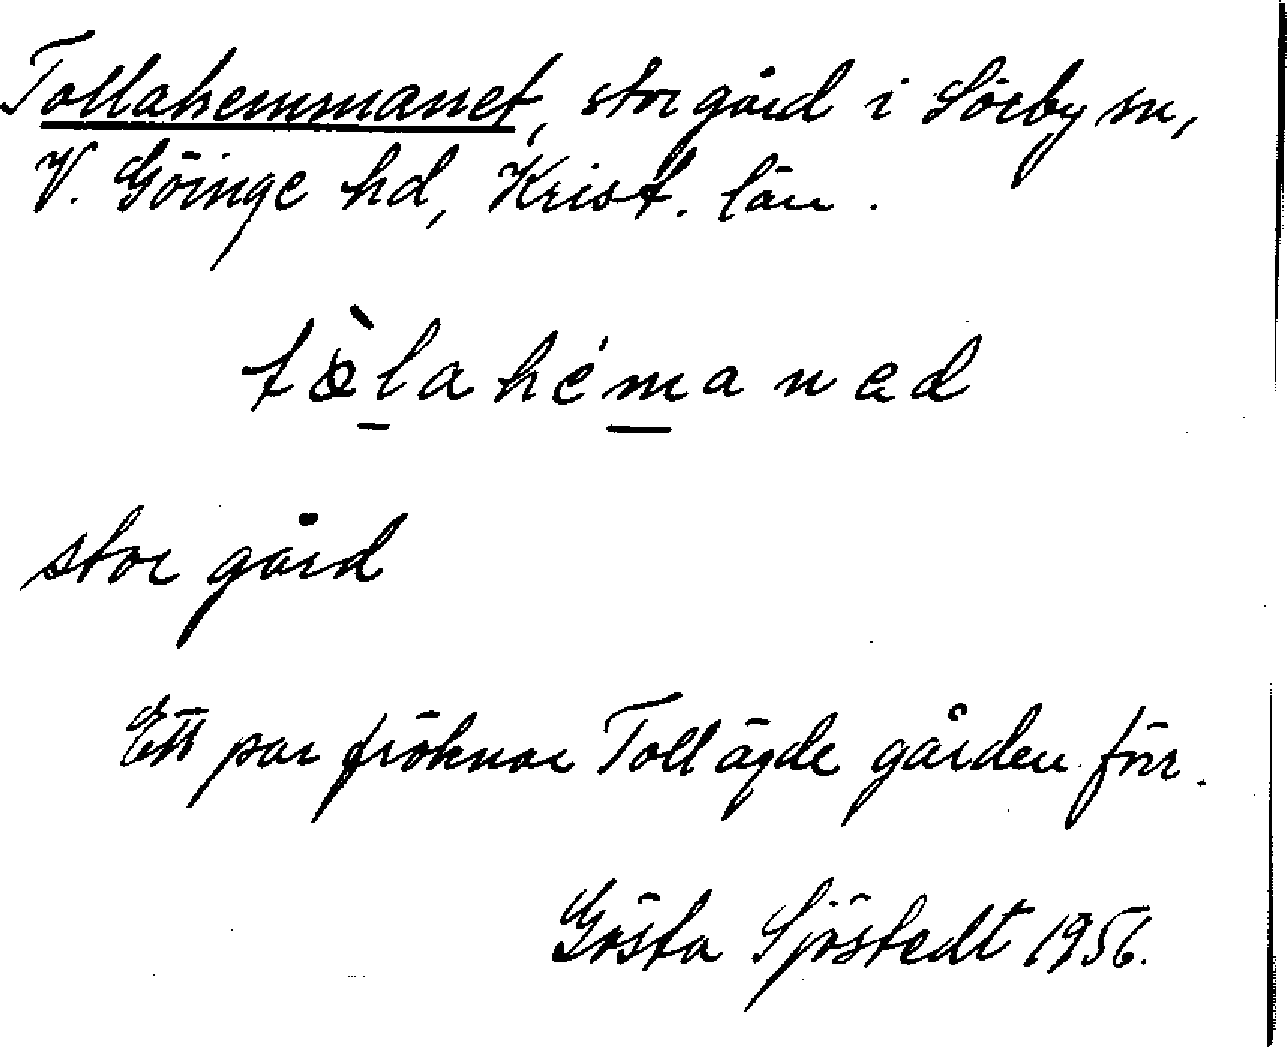 Tollahemmanet, stor gård i Sörby sn,
V. Göinge hd, Krist. län.
tòlahémanad
stor gård
Ett par fröknar Toll ägde gården förr.
Gösta Sjöstedt 1956.